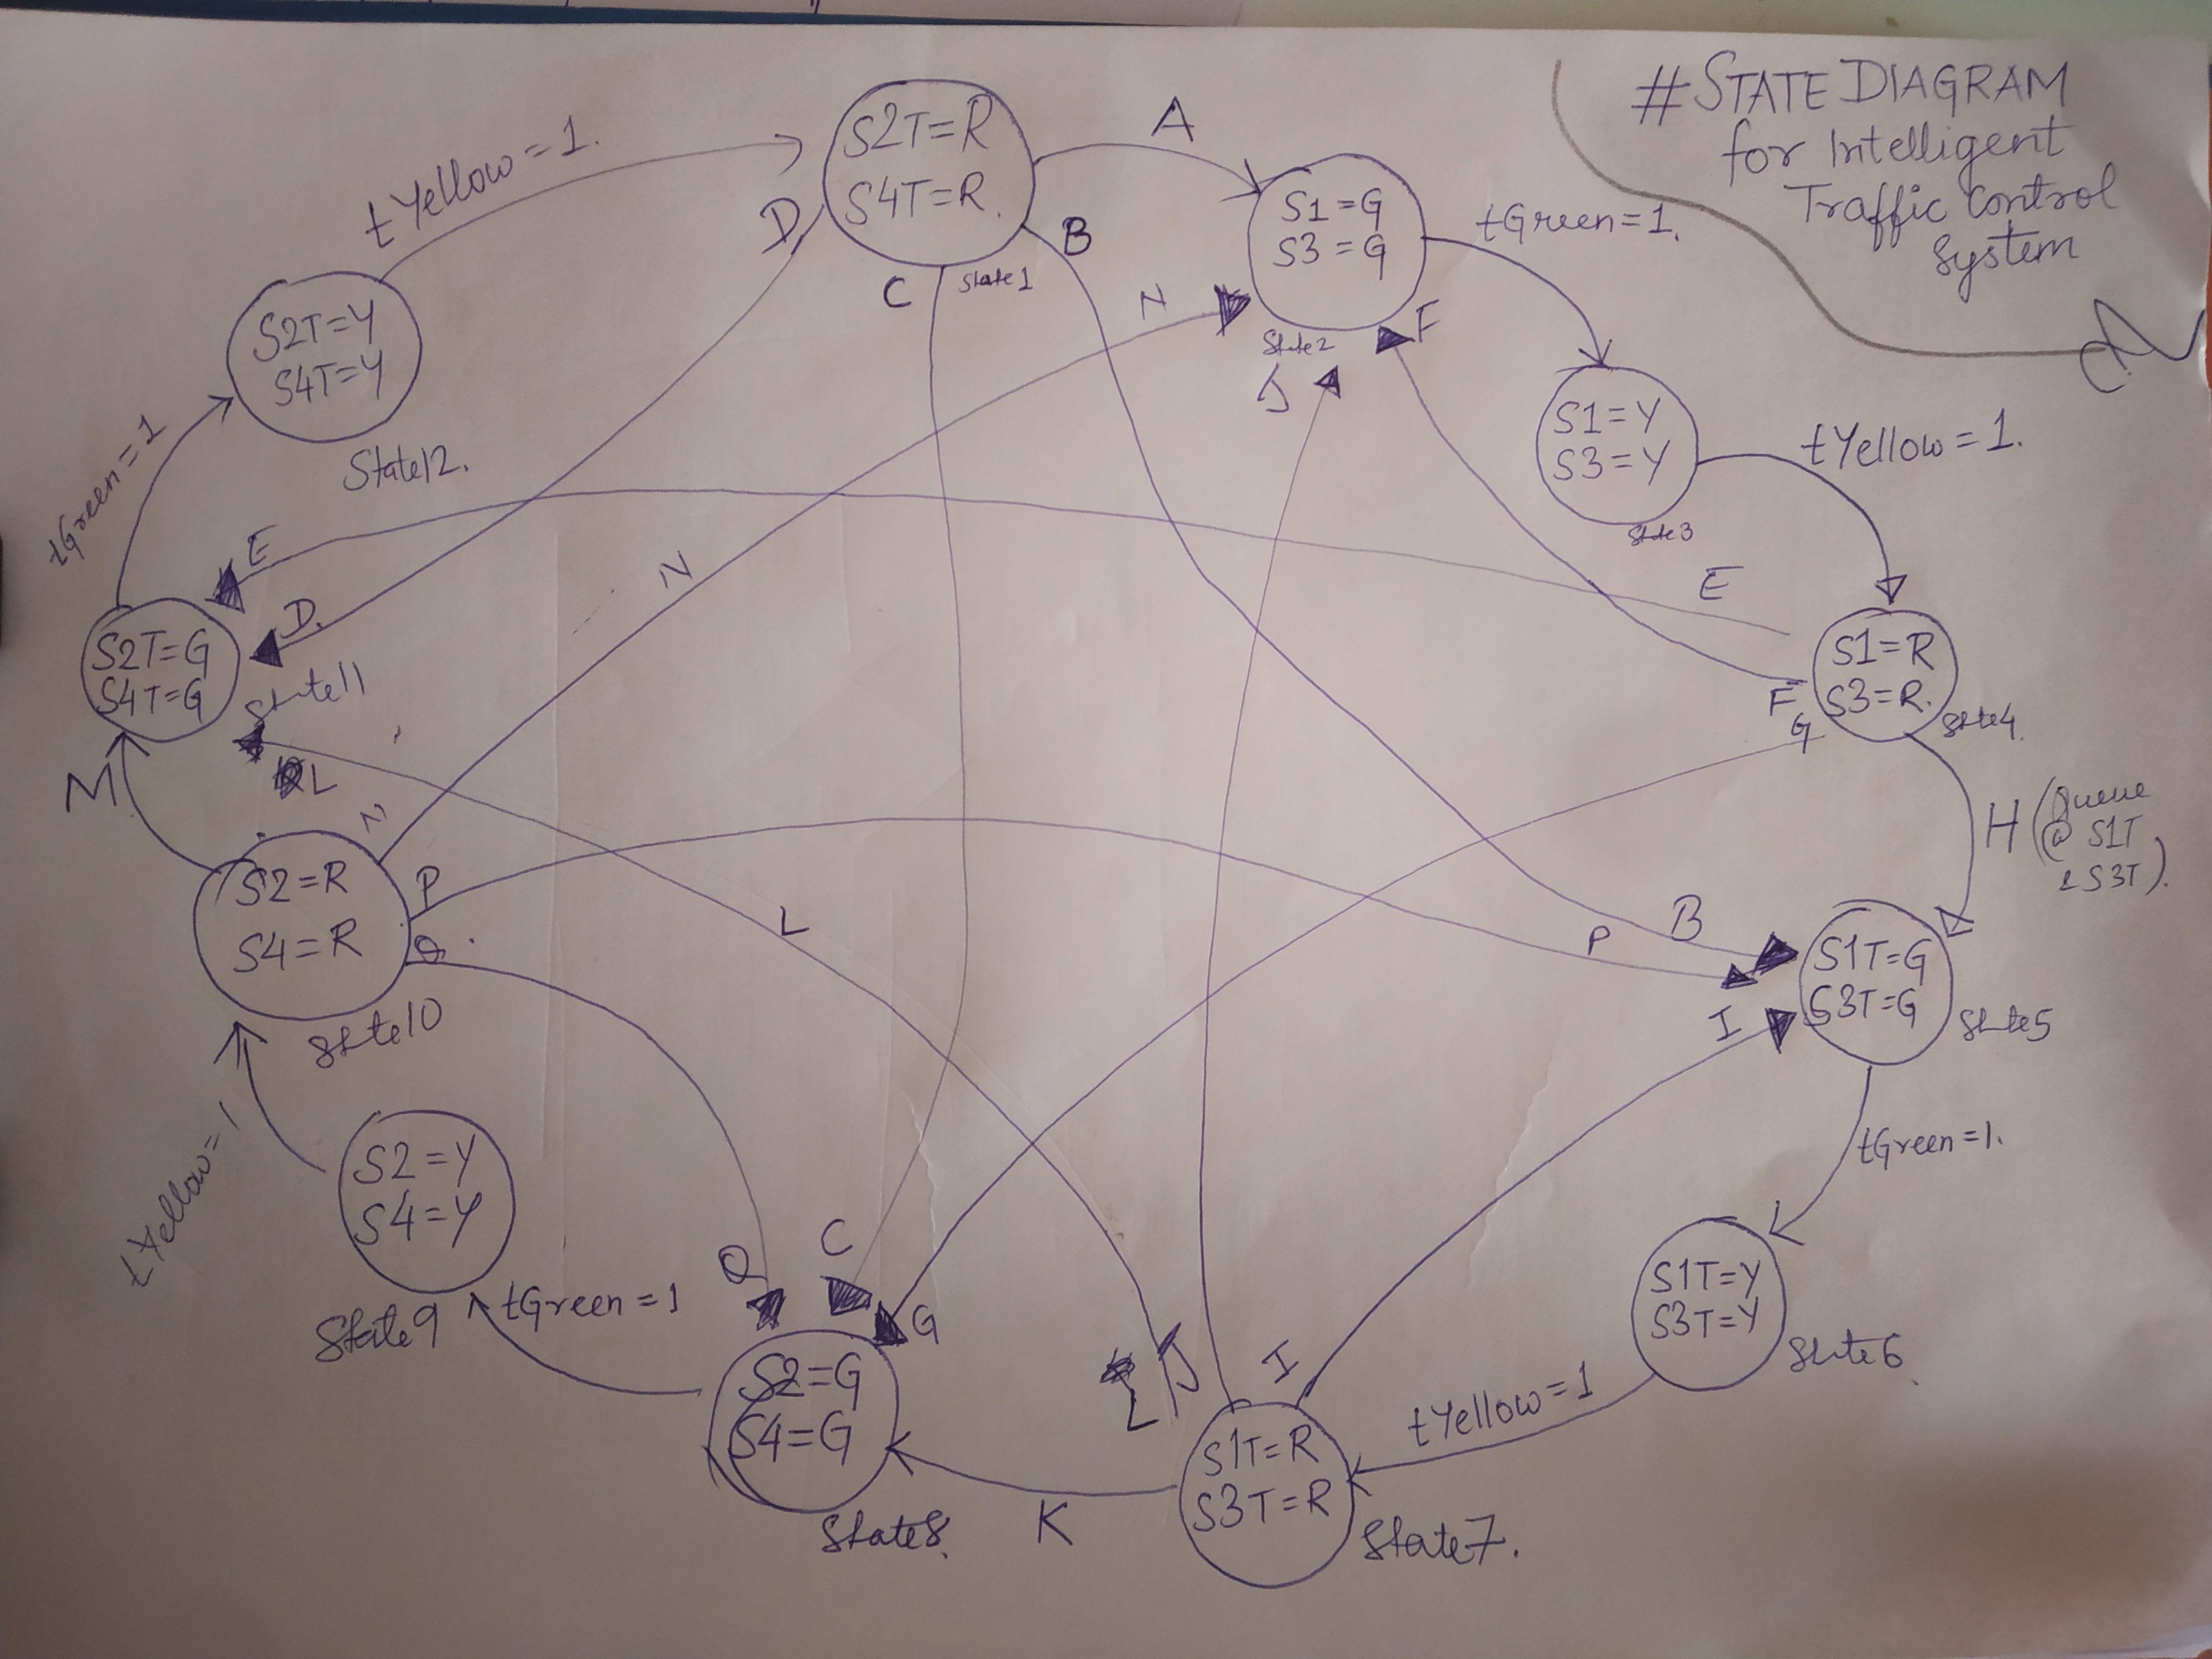 #STATE DIAGRAM
for Intelligent
Traffic Control
System
S2T=R
S4T=R.
State1
A
B
C
D
S1=G
S3=G
State2
N
F
J
tGreen=1.
S1=Y
S3=Y
State3
tYellow=1.
E
S1=R
S3=R.
State4.
F
G
H (Queue
@ S1T
& S3T).
S1T=G
S3T=G
State5
B
P
I
tGreen=1.
S1T=Y
S3T=Y
State6
tYellow=1
S1T=R
S3T=R
State7.
I
J
L
K
S2=G
S4=G
State8.
Q
C
G
tGreen=1
S2=Y
S4=Y
State9
tYellow=1
S2=R
S4=R
State10
N
P
Q.
M
N
L
S2T=G
S4T=G
State11
E
D.
L
tGreen=1
S2T=Y
S4T=Y
State12.
tYellow=1.